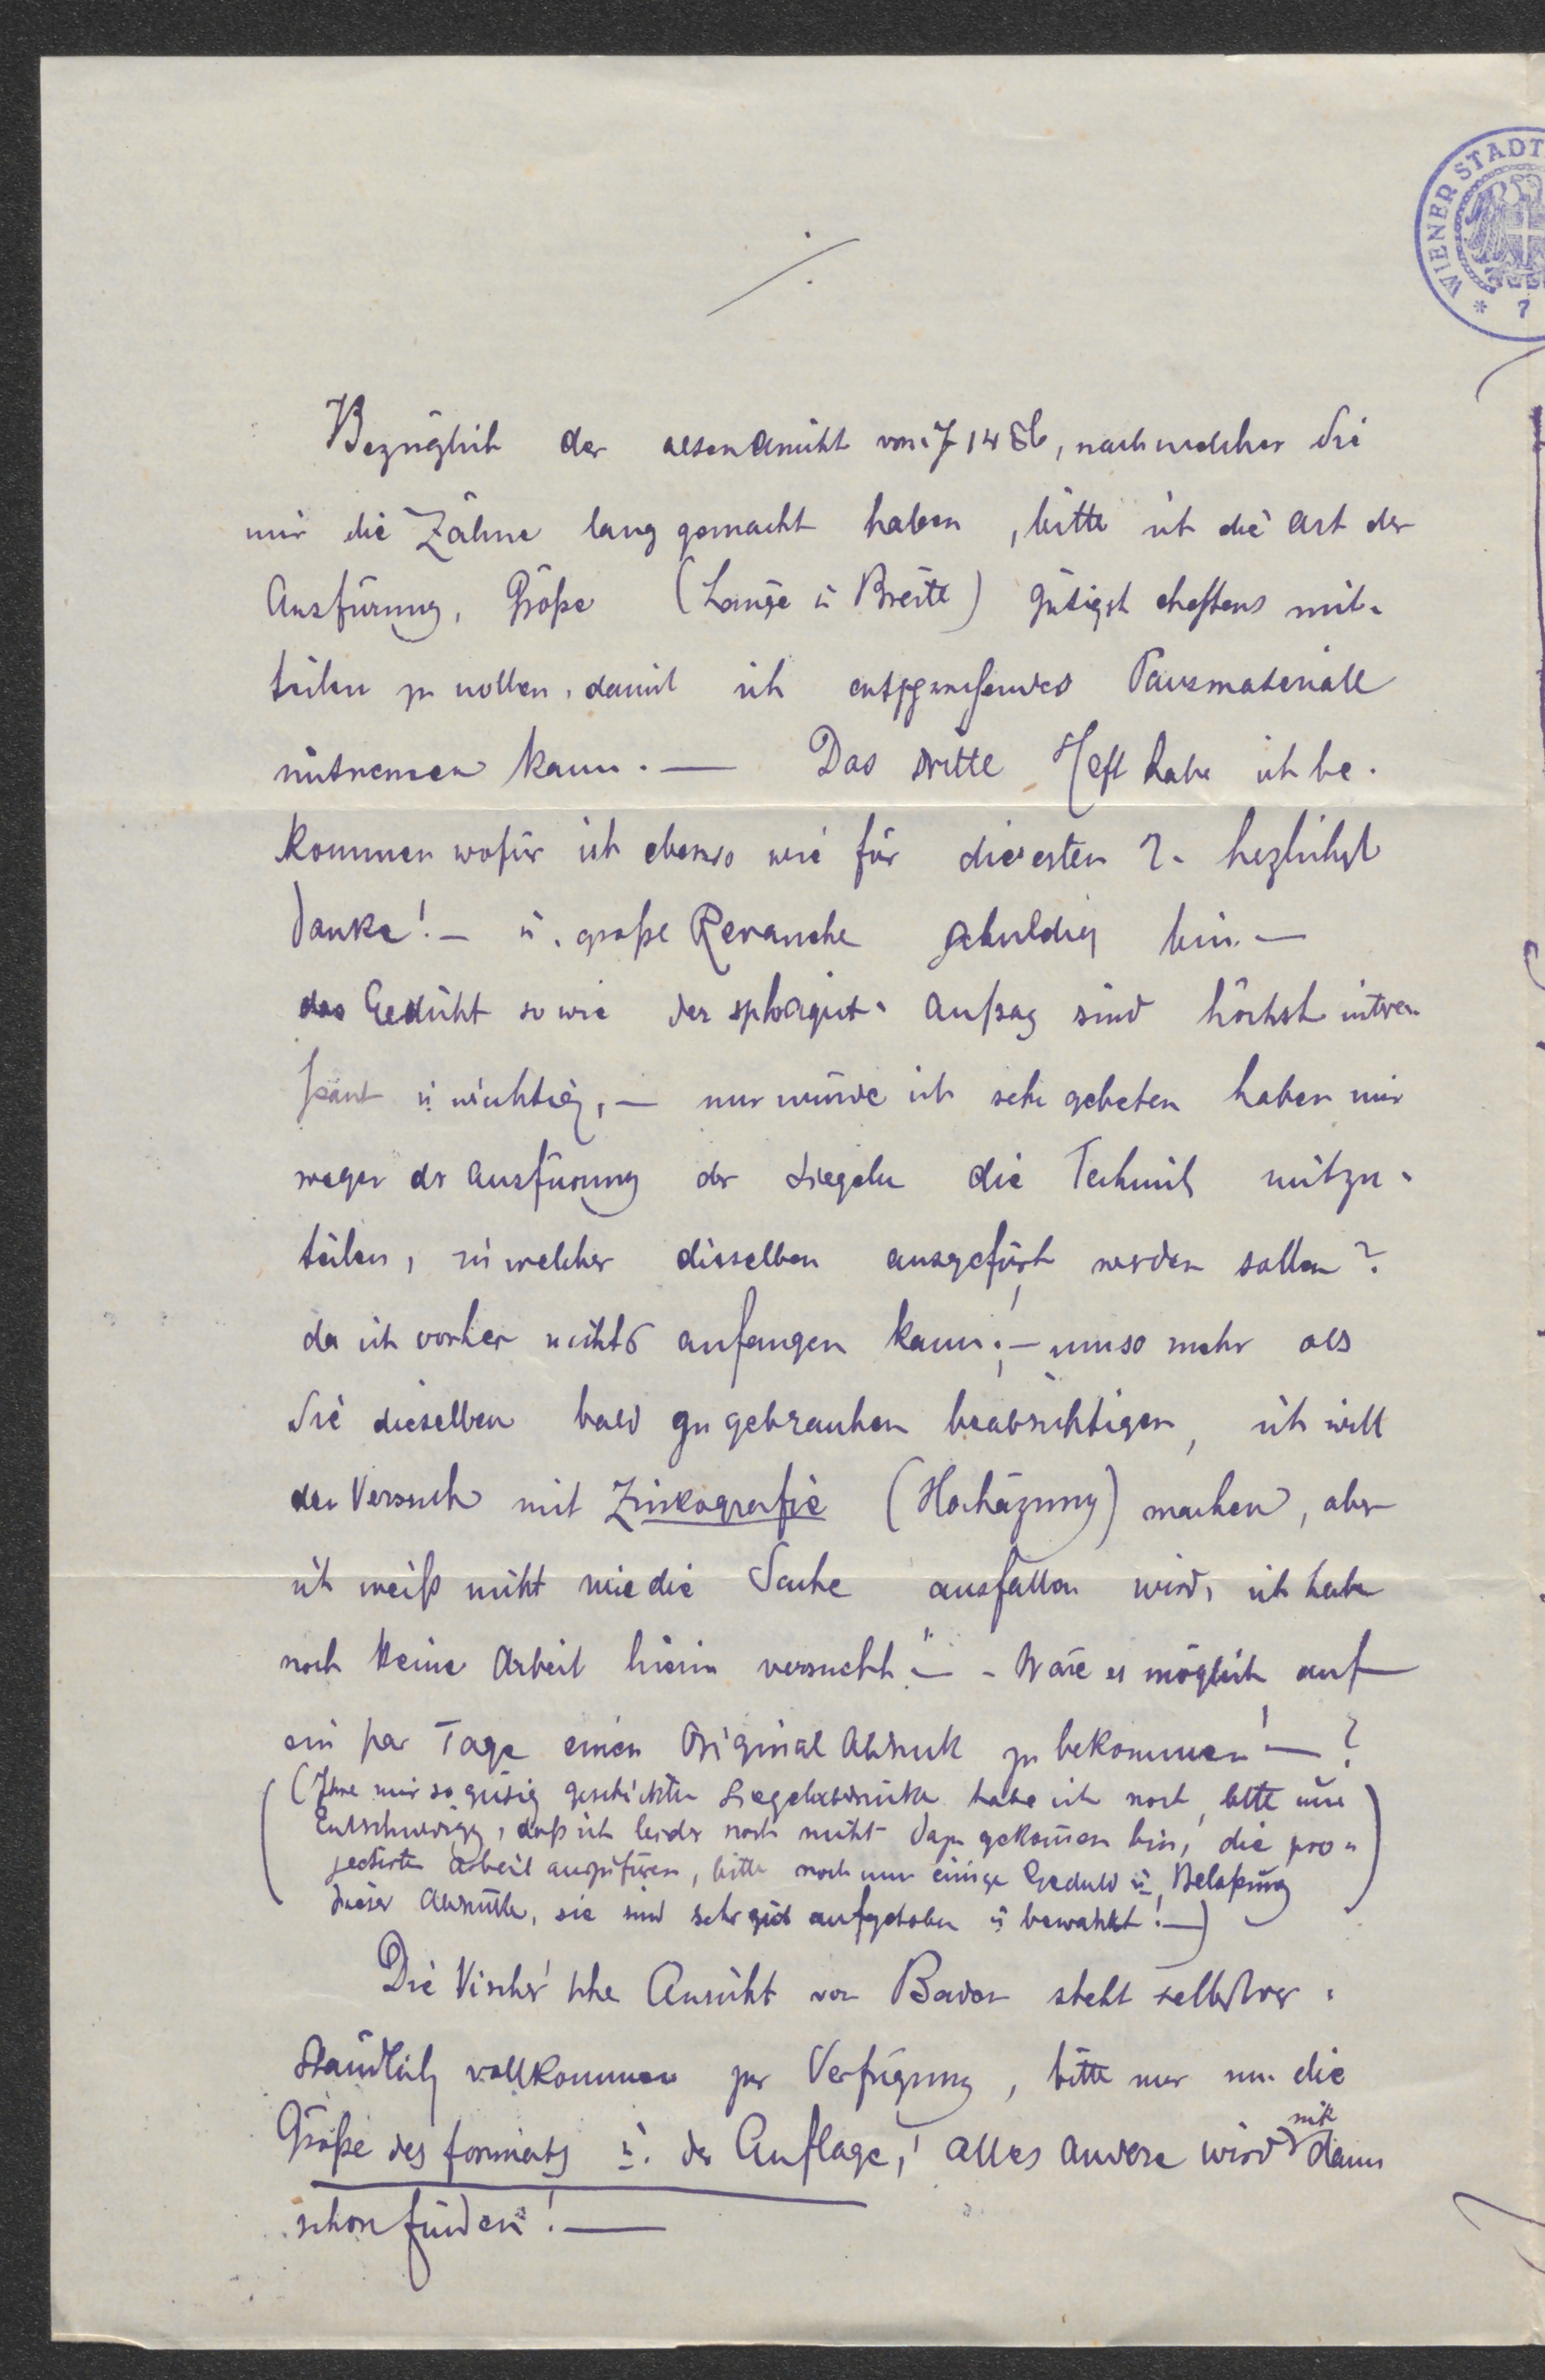 WIENER STADT
* 7
./.
Bezüglich der alten Ansicht von J 1486, nach welcher Sie
mir die Zähne lang gemacht haben, bitte ich die Art der
Ausfürung, Größe (Länge u Breite) gütigst ehestens mit-
teilen zu wollen, damit ich entsprechendes Pausmateriale
mitnemen kann. — Das dritte Heft habe ich be-
kommen wofür ich ebenso wie für die ersten 2. herzlichst
danke! — u. große Revanche schuldig bin. —
das Gedicht so wie der Aufsaz sind höchst intres-
sant u wichtig, — nur würde ich sehr gebeten haben mir
wegen der Ausfürung der Siegeln die Technik mitzu-
teilen, in welcher dieselben ausgefürt werden sollen?
da ich vorher nichts anfangen kann! — umso mehr als
Sie dieselben bald zu gebrauchen beabsichtigen, ich will
den Versuch mit Zinkografie (Hochäzung) machen, aber
ich weiß nicht wie die Sache ausfallen wird, ich habe
noch keine Arbeit hierin versucht! — - Wäre es möglich auf
ein par Tage einen Original Abdruck zu bekommen! — ?
(Ihre mir so gütig geschickten Siegelabdrücke habe ich noch, bitte um
Entschuldigg, daß ich leider noch nicht dazu gekommen bin, die pro-
jectirte Arbeit auszufüren, bitte noch um einige Geduld u. Belaßung
dieser Abdrücke, sie sind sehr gut aufgehoben u bewahrt! —)
Die Vischer'sche Ansicht von Baden steht selbstver-
ständlich vollkommen zur Verfügung, bitte mir nur die
Größe des Formats u. der Auflage,! alles andere wird sich dann
schon finden! —